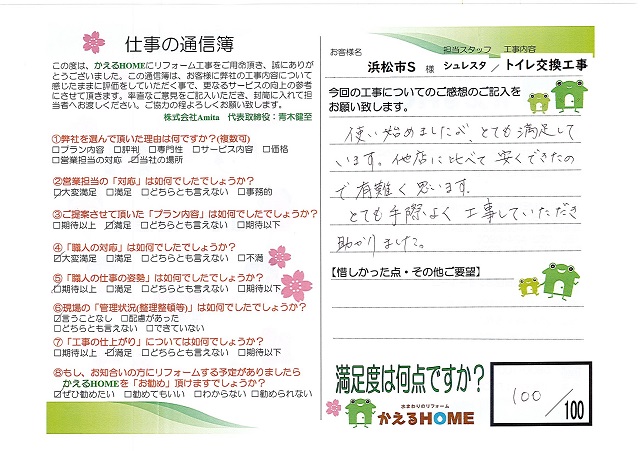 仕事の通信簿
この度は、かえるHOMEにリフォーム工事をご用命頂き、誠にありが
とうございました。この通信簿は、お客様に弊社の工事内容について
感じたままに評価をしていただく事で、更なるサービスの向上の参考
にさせて頂きます。率直なご意見をご記入いただき、封筒に入れて担
当者へお渡しください。ご協力の程よろしくお願い致します。
株式会社Amita 代表取締役：青木健至
①弊社を選んで頂いた理由は何ですか?(複数可)
□プラン内容 □評判 □専門性 □サービス内容 □価格
□営業担当の対応 ☑当社の場所
②営業担当の「対応」は如何でしたでしょうか?
☑大変満足 □満足 □どちらとも言えない □事務的
③ご提案させて頂いた「プラン内容」は如何でしたでしょうか?
□期待以上 ☑満足 □どちらとも言えない □期待以下
④「職人の対応」は如何でしたでしょうか?
☑大変満足 □満足 □どちらとも言えない □不満
⑤「職人の仕事の姿勢」は如何でしたでしょうか?
☑期待以上 □満足 □どちらとも言えない □期待以下
⑥現場の「管理状況(整理整頓等)」は如何でしたでしょうか?
☑言うことなし □配慮があった
□どちらとも言えない □できていない
⑦「工事の仕上がり」については如何でしたでしょうか?
□期待以上 ☑満足 □どちらとも言えない □期待以下
⑧もし、お知合いの方にリフォームする予定がありましたら
かえるHOMEを「お勧め」頂けますでしょうか?
☑ぜひ勧めたい □勧めてもいい □わからない □勧められない
お客様名 担当スタッフ 工事内容
浜松市S 様 シュレスタ / トイレ交換工事
今回の工事についてのご感想のご記入を
お願い致します。
使い始めましたが、とても満足して
います。他店に比べて安くできたの
で有難く思います。
とても手際よく工事していただき
助かりました。
【惜しかった点・その他ご要望】
満足度は何点ですか?
100/100
水まわりのリフォーム
かえるHOME